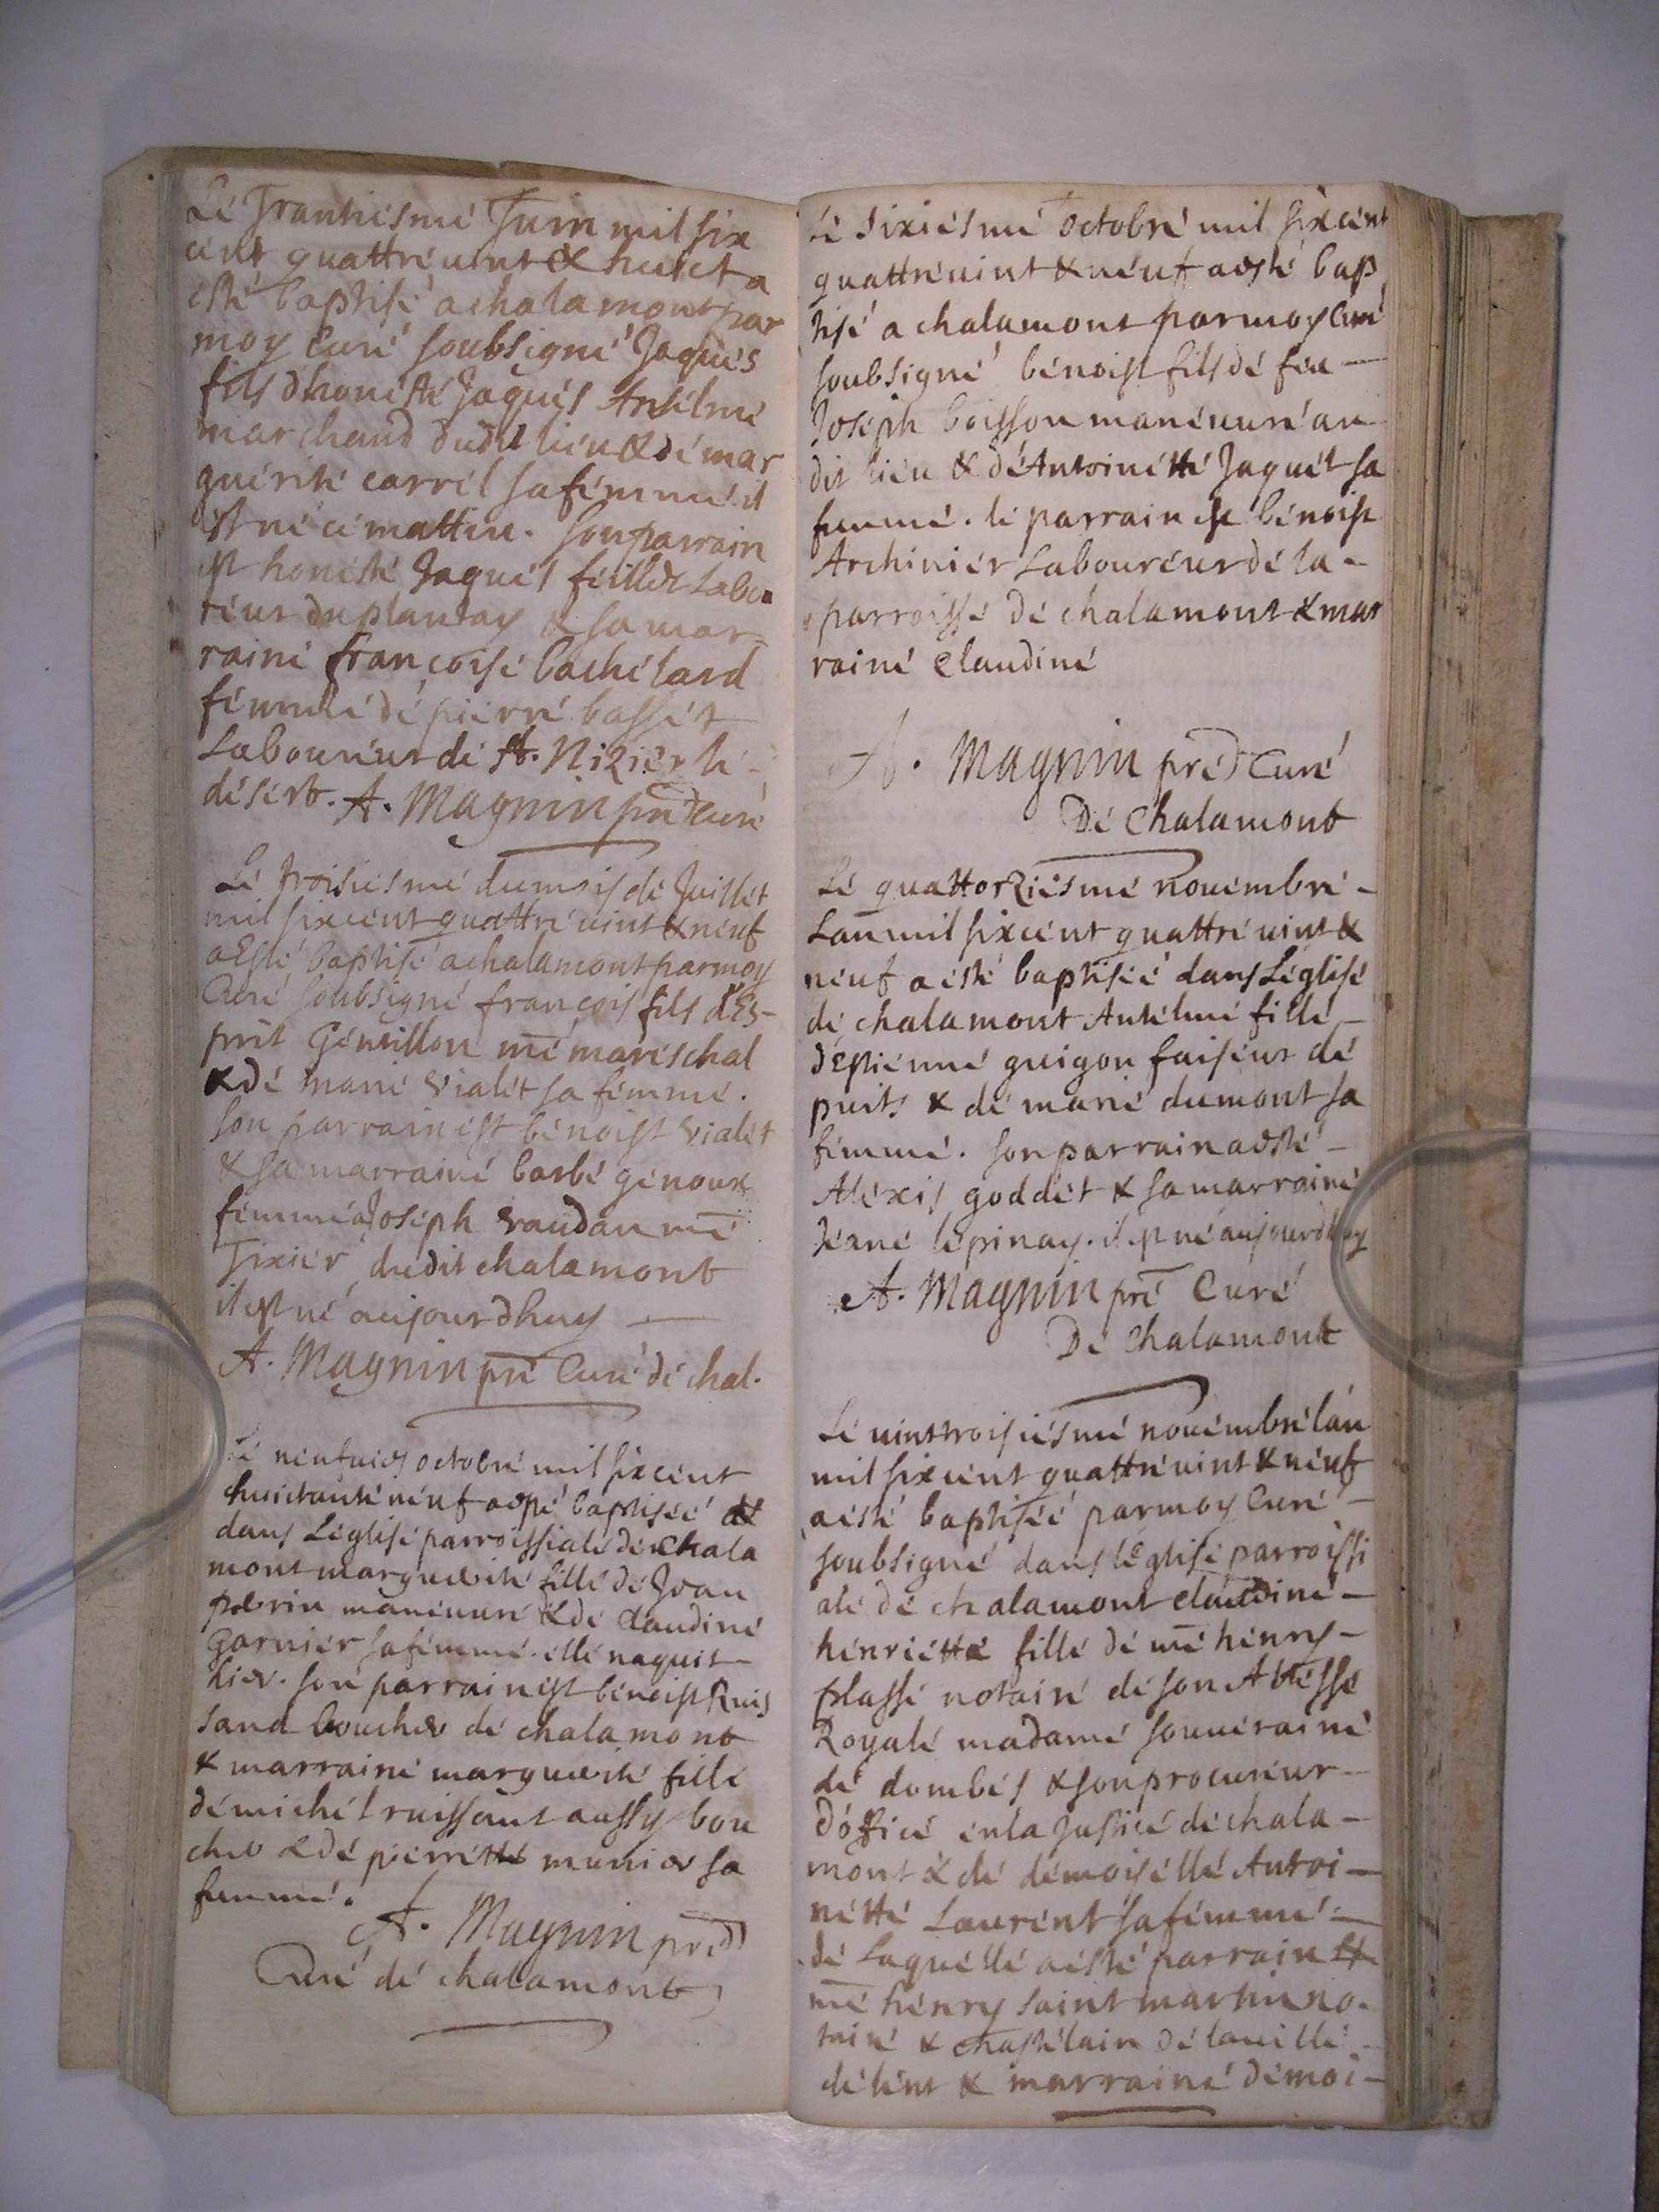 Lé Trantiésmé Juin mil six
cent quattré uint & huict a
esté baptisé a chalamont par
moy Curé soubsigné Jaqués
fils dhonésté Jaqués Ansélmé
marchand dudit liéu & dé mar
guérité carrél sa fémmé. il
est né cé mattin. son parrain
est honésté Jaqués féillet Labou
réur du plantay & sa mar-
rainé françoisé bachélard
fémmé dé piérré bassét
Labouréur dé st. Niziér lé-
désért. A. Magnin pré Curé
Lé troisiésmé du mois dé Juillét
mil sixcént quattré uint & néuf
a Esté baptisé a chalamont par moy
Curé soubsigné françois fils d'Es-
prit Génillon mé maréschal
& dé marié vialét sa fémmé.
son parrain ést bénoist vialét
& sa marrainé barbé génoux
fémmé a Joséph vaudan mé
Tixiér dudit chalamont
il est né aujourdhuy —
A. Magnin pré Curé dé chal.
Lé neufuies octobré mil sixcént
huictanté néuf a esté baptiséé
dans L'églisé parroissialé dé Chala
mont margueité fillé dé Jean
pobrin manéuuré & dé claudiné
garniér sa fémmé. éllé naquit
hier. son parrain ést bénoist Ruis
sand bouchér dé chalamont
& marrainé margueité fillé
dé michél ruissant aussy bou
cher & dé piérrétté munier sa
fémmé. A. Magnin pré
Curé dé chalamont
Lé sixiésmé octobré mil sixcént
quattré uint & néuf a esté bap
tisé a chalamont par moy Curé
soubsigné bénoist fils dé féu —
Joséph boisson manéuuré au
dit liéu & dé Antoinétté Jaquét sa
fémmé. lé parrain est bénoist
Archiniér Labouréur dé la -
parroissé dé chalamont & mar
rainé claudiné
A. Magnin pré Curé
Dé Chalamont
Lé quattorziésmé nouémbré -
Lan mil sixcént quattré uint &
néuf a ésté baptiséé dans L'églisé
dé chalamont Antélmé fillé —
d'éstiénné guigon faiséur dé
puits & dé marié dumont sa
fémmé. son parrain a esté —
Aléxis goddét & sa marrainé
Jéané lépinay. il est né aujourdhuy
A. Magnin pré Curé
Dé Chalamont
Lé uint troisiésmé nouémbré lán
mil sixcént quattré uint & néuf
a ésté baptiséé par moy Curé —
soubsigné dans l'églisé parroissi
alé dé chalamont claudiné —
hénriétté fillé dé mé hénry —
plassé notairé dé son Altéssé
Royalé madamé souuérainé
dé dombés & son procuréur —
d'officé én la Justicé dé chala —
mont & dé démoiséllé Antoi —
nétté Laurént sa fémmé —
dé laquéllé a ésté parrain
mé hénry saint martin no.
tairé & chastélain dé la uillé —
dé lént & marrainé démoi —